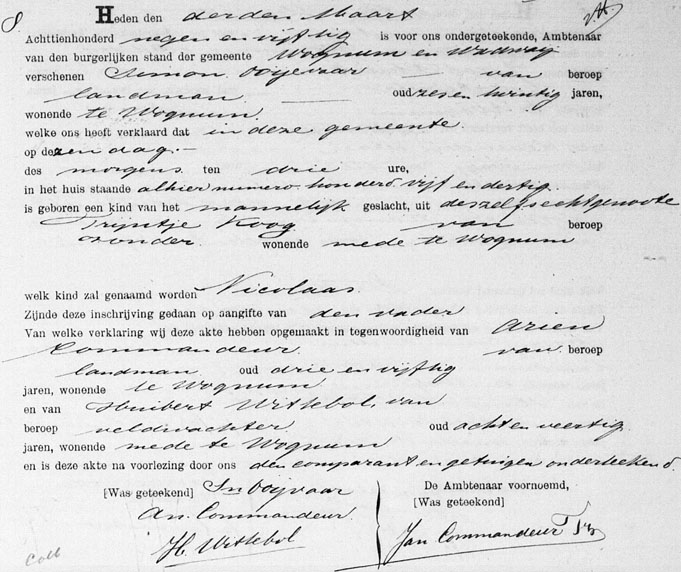 8.
Heden den derden Maart
Achttienhonderd negen en vijftig is voor ons ondergeteekende, Ambtenaar
van den burgerlijken stand der gemeente Wognum en Wadway
verschenen Simon Ooijevaar van beroep
landman oud zes en twintig jaren,
wonende te Wognum
welke ons heeft verklaard dat in deze gemeente
op dezen dag.
des morgens ten drie ure,
in het huis staande alhier numero honderd vijf en dertig
is geboren een kind van het mannelijk geslacht, uit deszelfs echtgenoote
Trijntje Koog van beroep
zonder wonende mede te Wognum
welk kind zal genaamd worden Nicolaas
Zijnde deze inschrijving gedaan op aangifte van den vader
Van welke verklaring wij deze akte hebben opgemaakt in tegenwoordigheid van Arien
Commandeur van beroep
landman oud drie en vijftig
jaren, wonende te Wognum
en van Huibert Witkebol, van
beroep veldwachter oud acht en veertig
jaren, wonende mede te Wognum
en is deze akte na voorlezing door ons den comparant en getuigen onderteekend.
[Was geteekend] Sn Ooijvaar
An. Commandeur
H. Witkebol
De Ambtenaar voornoemd,
[Was geteekend]
Jan Commandeur
Coll